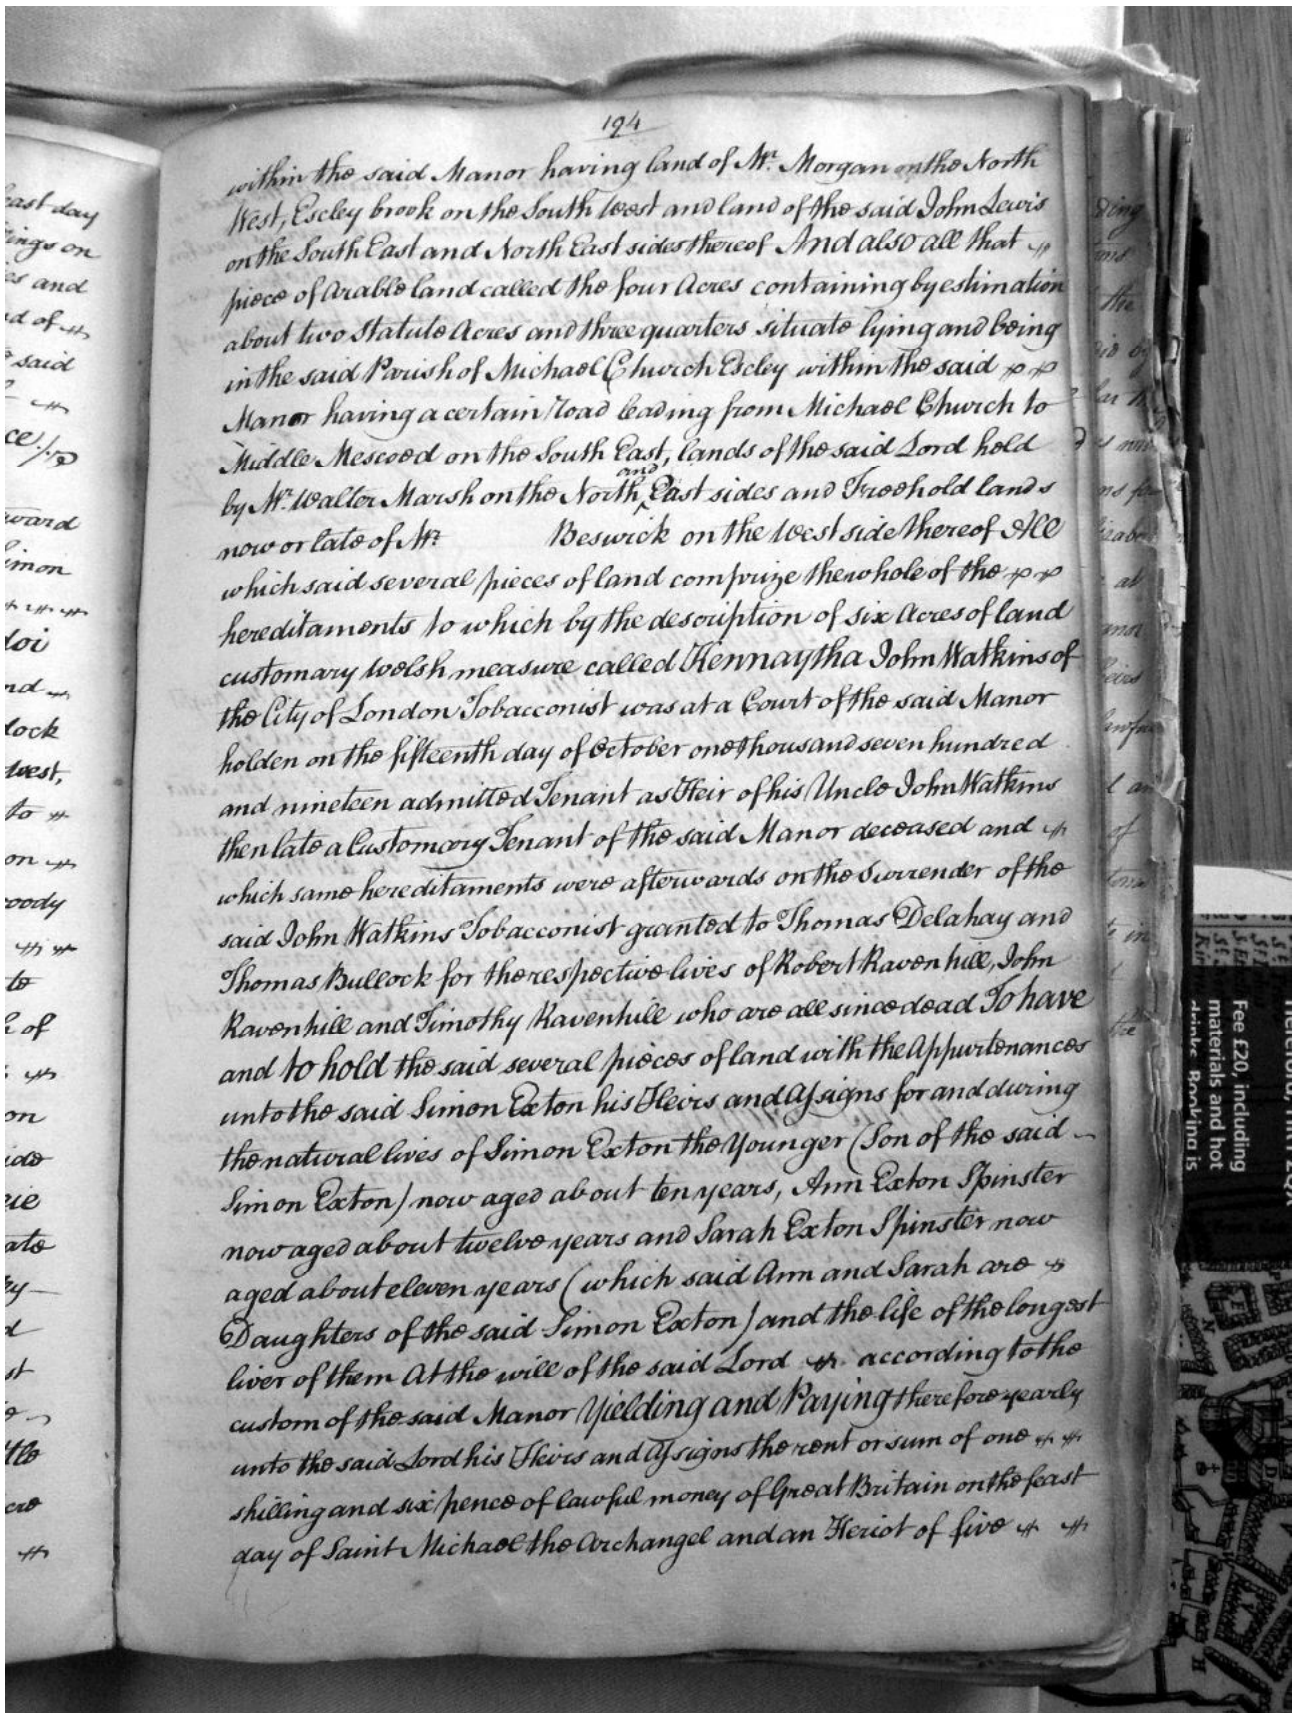 east day
tings on
es and
d of
said
ce./.
ward
imon
doi
nd
lock
west,
to
on
oody
te
of
on
ide
eie
ate
ey
d
st
ttle
cre
194
within the said Manor having land of Mr. Morgan on the North
West, Escley brook on the South West and land of the said John Lewis
on the South East and North East sides thereof And also all that
piece of arable land called the four Acres containing by estimation
about two statute Acres and three quarters situate lying and being
in the said Parish of Michael Church Escley within the said
Manor having a certain road leading from Michael Church to
Middle Mescoed on the South East, lands of the said Lord held
by Mr. Walter Marsh on the North and East sides and Freehold lands
now or late of Mr. Beswick on the West side thereof All
which said several pieces of land comprize the whole of the
hereditaments to which by the description of six Acres of land
customary welsh measure called Kennaytha John Watkins of
the City of London Tobacconist was at a Court of the said Manor
holden on the fifteenth day of October one thousand seven hundred
and nineteen admitted Tenant as Heir of his Uncle John Watkins
then late a Customary Tenant of the said Manor deceased and
which same hereditaments were afterwards on the Surrender of the
said John Watkins Tobacconist granted to Thomas Delahay and
Thomas Bullock for the respective lives of Robert Ravenhill, John
Ravenhill and Timothy Ravenhill who are all since dead To have
and to hold the said several pieces of land with the Appurtenances
unto the said Simon Exton his Heirs and Assigns for and during
the natural lives of Simon Exton the Younger (Son of the said
Simon Exton) now aged about ten years, Ann Exton Spinster
now aged about twelve years and Sarah Exton Spinster now
aged about eleven years (which said Ann and Sarah are
Daughters of the said Simon Exton) and the life of the longest
liver of them At the will of the said Lord according to the
custom of the said Manor Yielding and Paying therefore yearly
unto the said Lord his Heirs and Assigns the rent or sum of one
shilling and six pence of lawful money of Great Britain on the feast
day of Saint Michael the Archangel and an Heriot of five
ding
the
of
in
Fee £20, including
materials and hot
drinks. Booking is